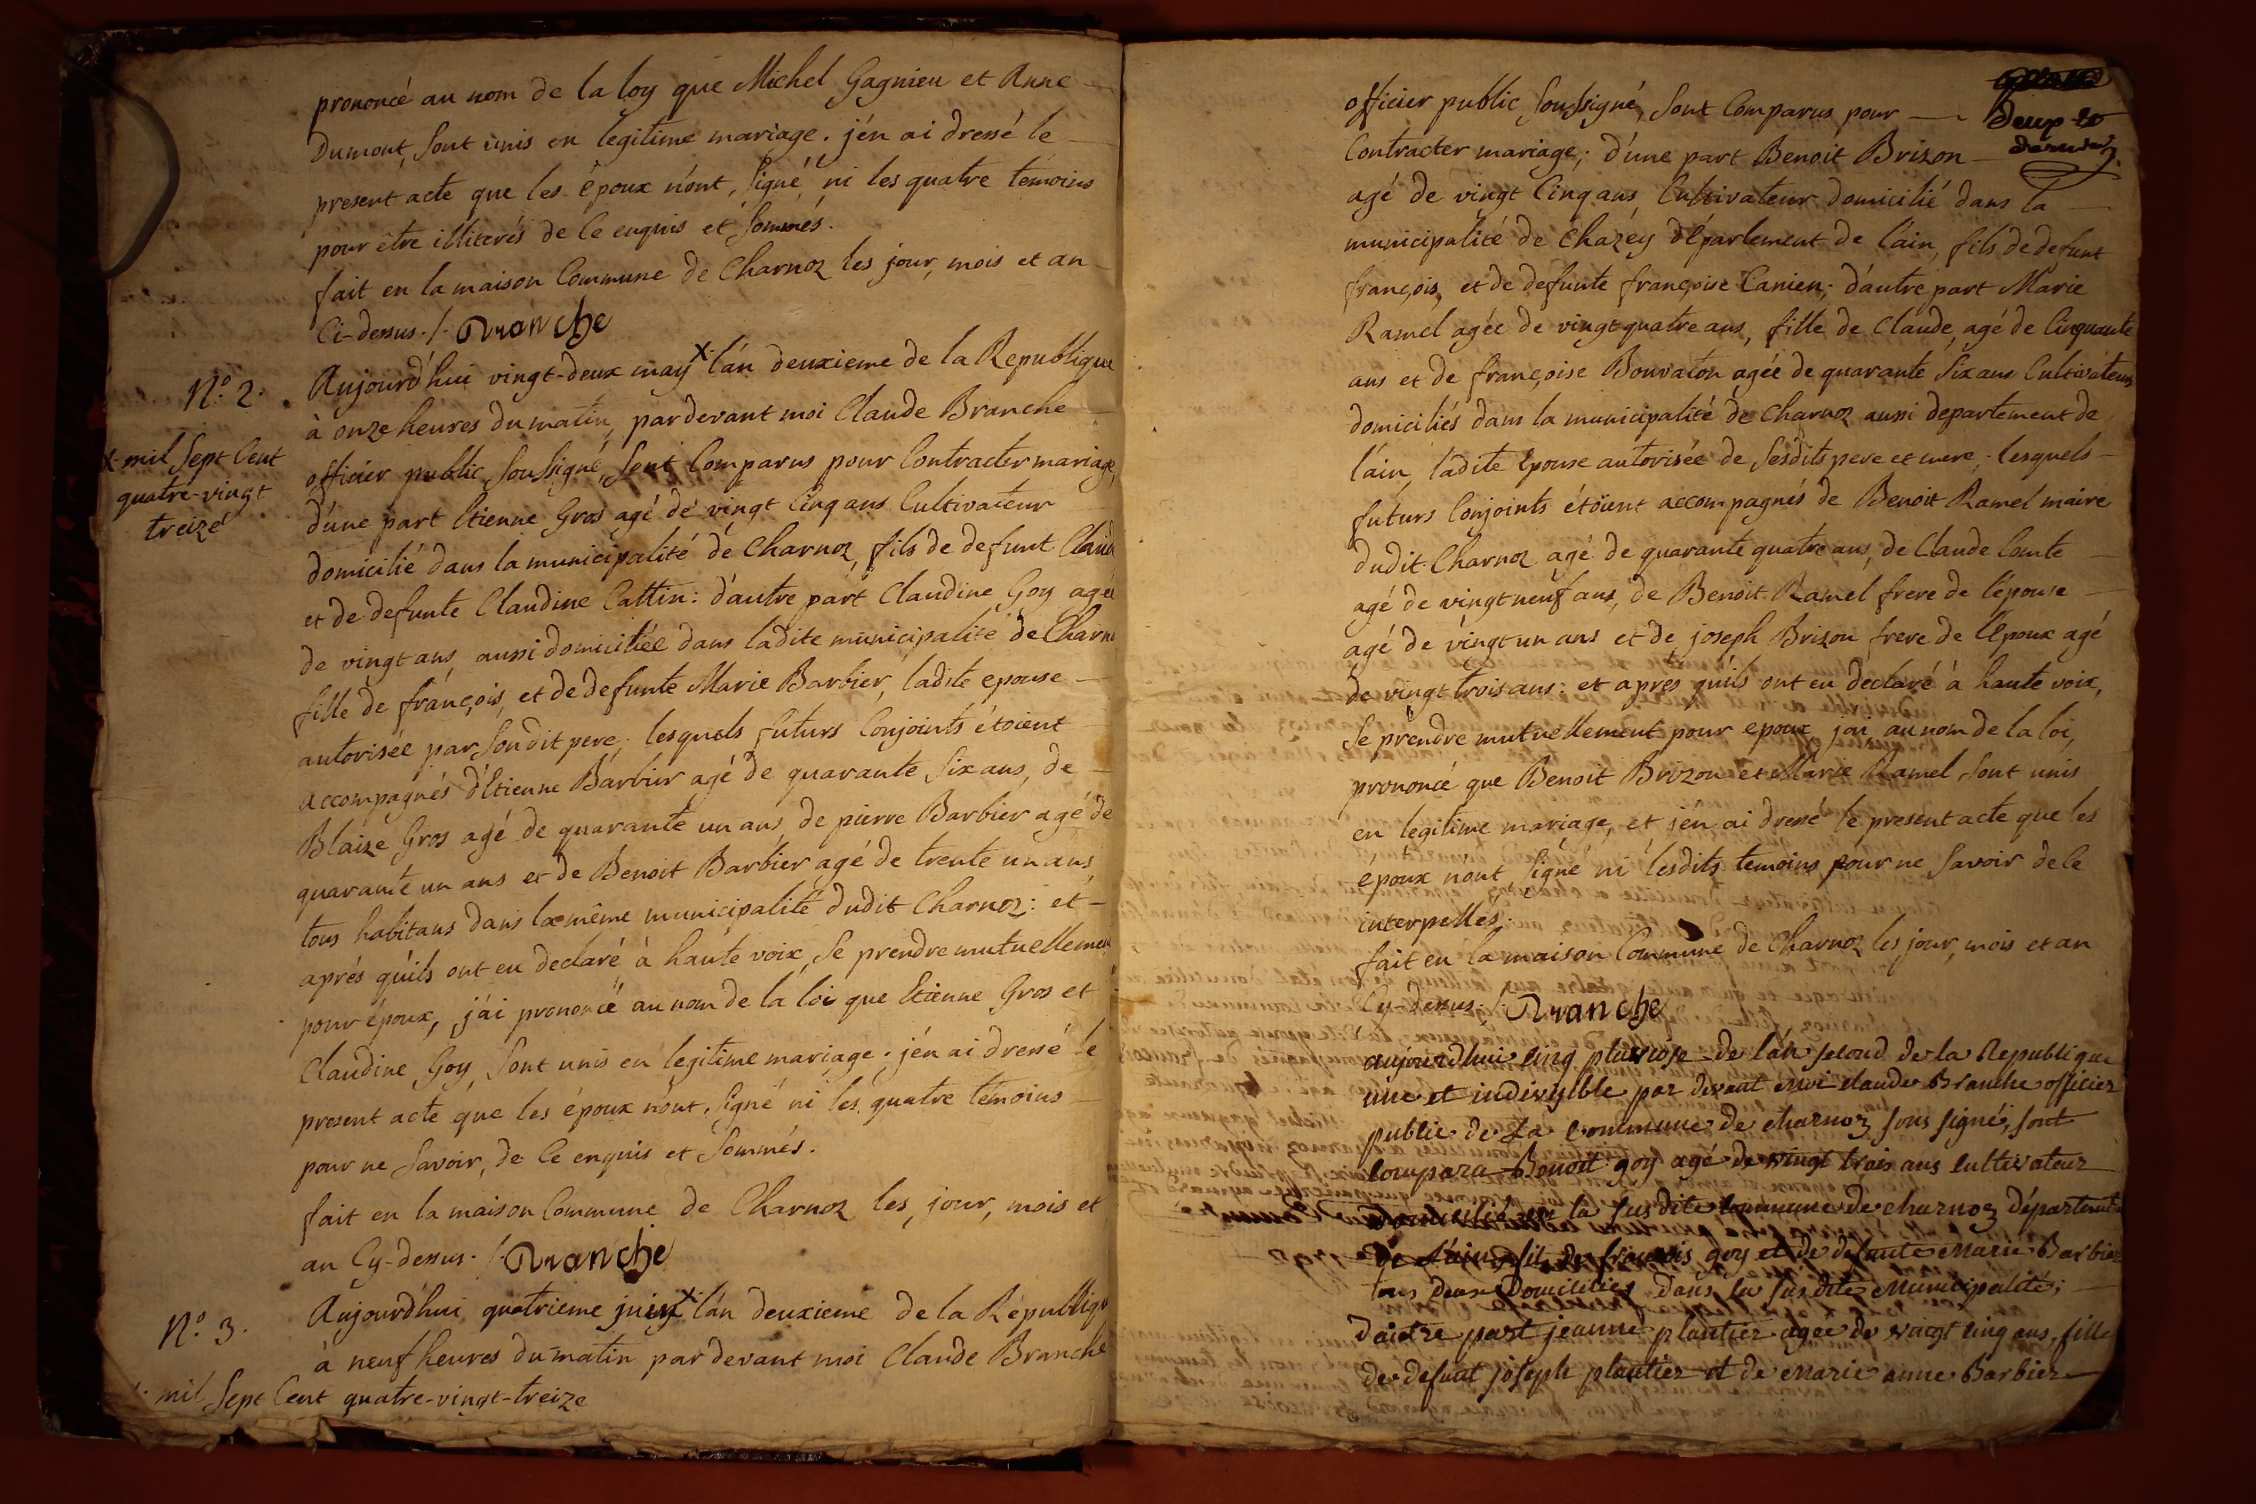 prononcé au nom de la loy que Michel Gagnieu et Anne
Dumont, sont unis en legitime mariage. j'én ai dressé le
present acte que les époux n'ont signé ni les quatre temoins
pour être illiterés de ce enquis et sommés.
fait en la maison Commune de Charnoz les jour, mois et an
Ci-dessus ./. Branche
N.º 2.
Aujourd'hui vingt-deux may X l'án deuxieme de la Republique
à onze heures du matin, pardevant moi Claude Branche
X mil Sept Cent
quatre-vingt
treizé
officier public soussigné, sont Comparus pour Contracter mariage,
d'úne part Etienne Gros agé de vingt Cinq ans Cultivateur
domicilié dans la municipalité de Charnoz, fils de defunt Claud
et de defunte Claudine Cattin: d'áutre part Claudine Goy agée
de vingt ans, aussi domiciliée dans ladite municipalité de Charn
fille de françois, et de defunte Marie Barbier, ladite epouse
autorisée par sondit pere; lesquels futurs Conjoints étoient
accompagnés d'Etienne Barbier agé de quarante six ans, de
Blaize Gros agé de quarante un ans, de pierre Barbier agé de
quarante un ans et de Benoit Barbier agé de trente un ans,
tous habitans dans la même municipalité dudit Charnoz: et
aprés qu'ils ont eu declaré à haute voix, se prendre mutuellemen
pour époux, j'ái prononcé au nom de la loi que Etienne Gros et
Claudine Goy, sont unis en legitime mariage; j'én ai dressé le
present acte que les époux n'ont signé ni les quatre témoins
pour ne savoir, de ce enquis et sommés.
fait en la maison Commune de Charnoz les, jour, mois et
an Cy-dessus. /. Branche
N.º 3.
Aujourd'hui quatrieme juin X l'án deuxieme de la Républiqu
à neuf heures du matin par devant moi Claude Branche
mil Sept Cent quatre-vingt-treize
officier public soussigné, sont Comparus pour
Deux
Contracter mariage; d'úne part Benoit Brizon
agé de vingt Cinq ans Cultivateur domicilié dans la
municipalité de Chazéy département de l'áin, fils de defunt
françois, et de defunte françoise Canien; d'áutre part Marie
Ramel agée de vingt quatre ans, fille de Claude, agé de Cinquante
ans et de françoise Bouvaton agée de quarante six ans Cultivateurs
domiciliés dans la municipalité de Charnoz aussi departement de
l'áin, ladite Epouse autorisée de sesdits pere et mere; lesquels
futurs Conjoints étoient accompagnés de Benoit Ramel maire
dudit Charnoz agé de quarante quatre ans, de Claude Comte
agé de vingt neuf ans, de Benoit Ramel frere de l'épouse
agé de vingt un ans et de joseph Brizon frere de l'Epoux agé
de vingt trois ans: et apres qu'ils ont eu declaré à haute voix,
se prendre mutuellement pour epoux, j'ai, au nom de la loi,
prononcé que Benoit Brizon et Marie Ramel sont unis
en legitime mariage, et j'én ai dressé le present acte que les
époux n'ont signé ni lesdits temoins pour ne savoir de ce
interpellés.
fait en la maison Commune de Charnoz les jour, mois et an
Cy-dessus. /. Branche
aujourdhui cinq pluviose de lan second de la Republique
une et indivisible par devant moi claude Branche officier
public de La Commune de charnoz sous signé, sont
compara Benoit goy agé de vingt trois ans cultivateur
domicilié en la susdite commune de charnoz départemt
de l'ain, fit de francois goy et de defunte Marie Barbier
tous deux Domiciliés dans la susdite Municipalité;
d'autre part jeanne plantier agée de vaingt cinq ans, fille
de defunt joseph plantier et de Marie anne Barbier